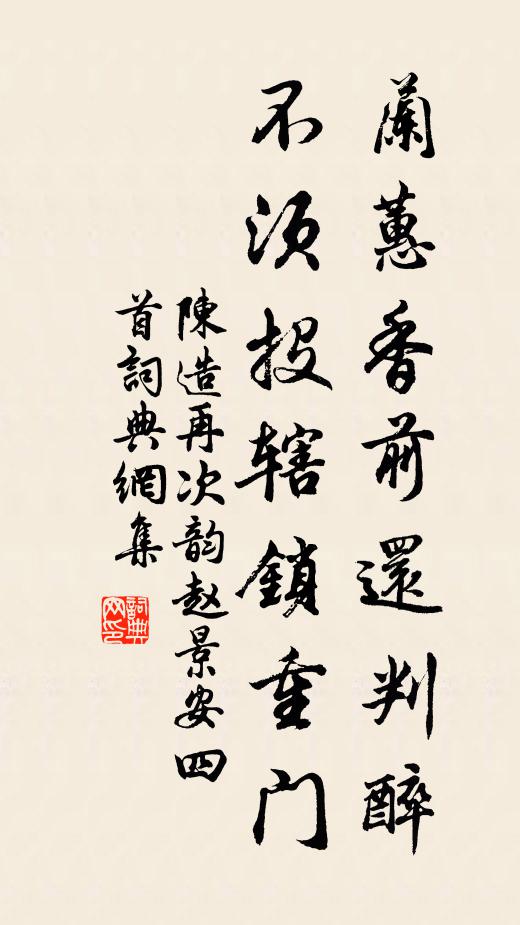 蘭蕙香前還判醉
不須投辖鎖重門
陳造再次韵赵景安四
首詞典網集
詞典
网印